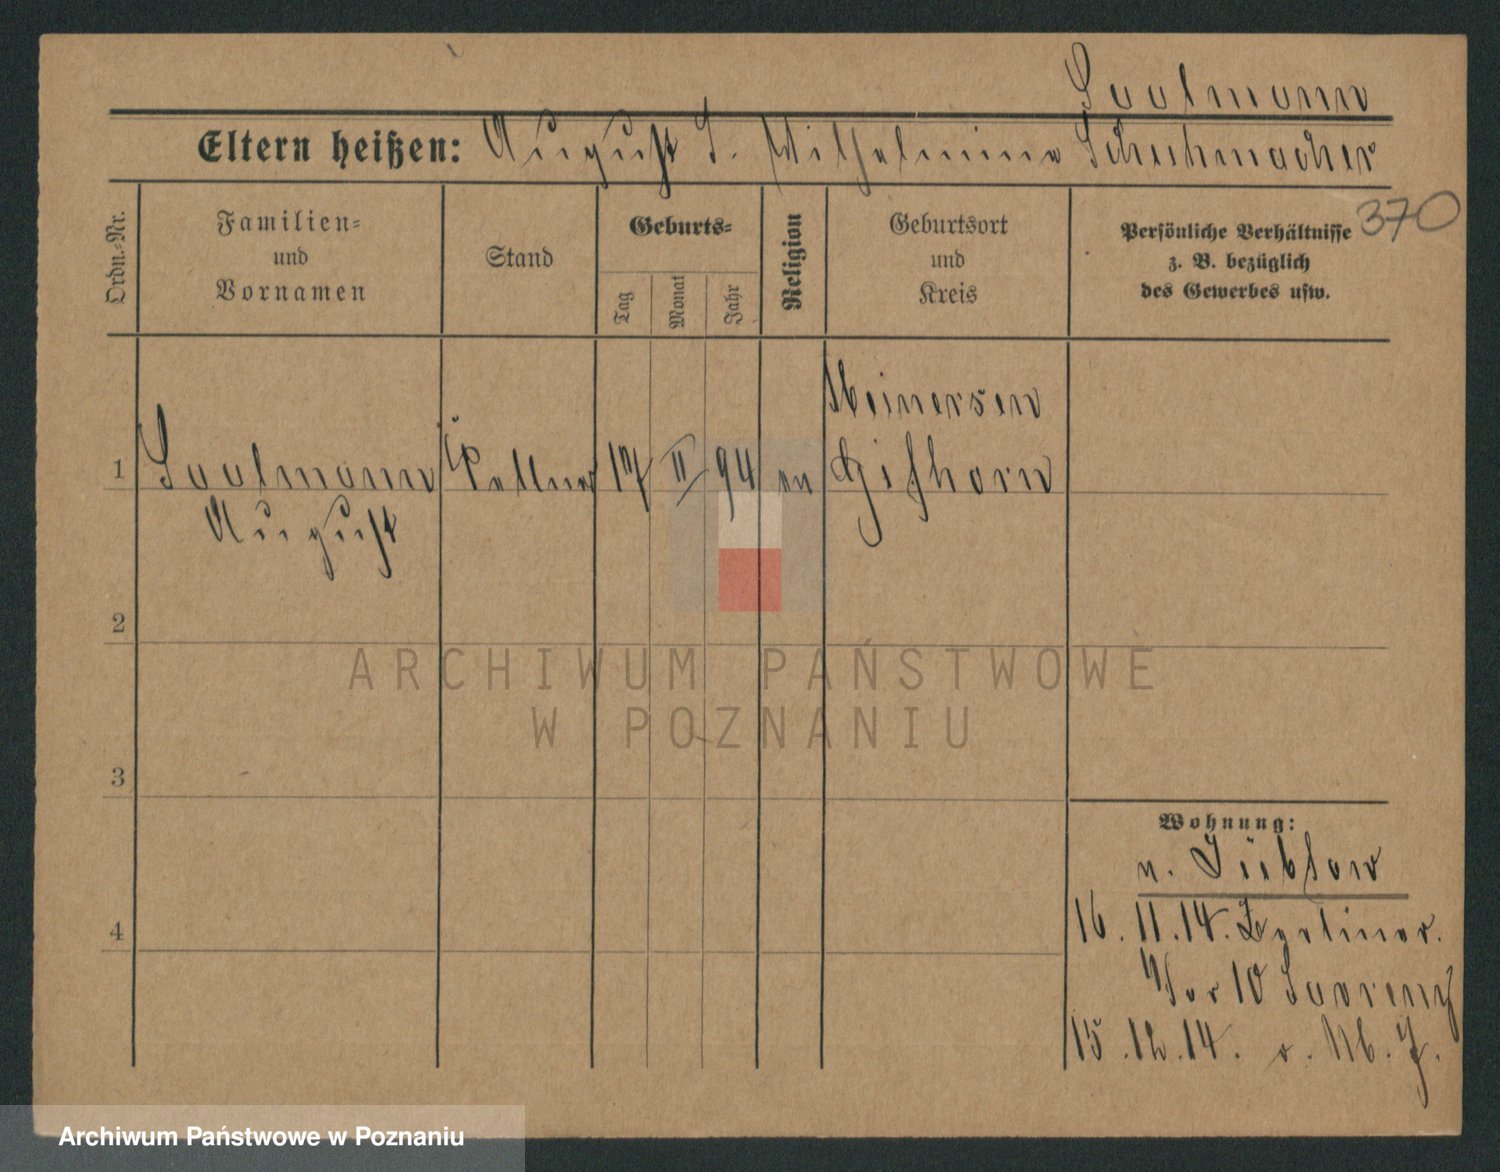 Saalmann
Eltern heißen: August S. Wilhelmine Schuhmacher
370
Ordn.-Nr.
Familien-
und
Vornamen
Stand
Geburts-
Tag
Monat
Jahr
Religion
Geburtsort
und
Kreis
Persönliche Verhältnisse
z. B. bezüglich
des Gewerbes usw.
Meinersen
1 Saalmann Kellner 17 II 94 ev Gifhorn
August
2
3
4
Wohnung:
n.
16. 11. 14. Berliner.
10
15. 12. 14. v.
ARCHIWUM PAŃSTWOWE
W POZNANIU
Archiwum Państwowe w Poznaniu